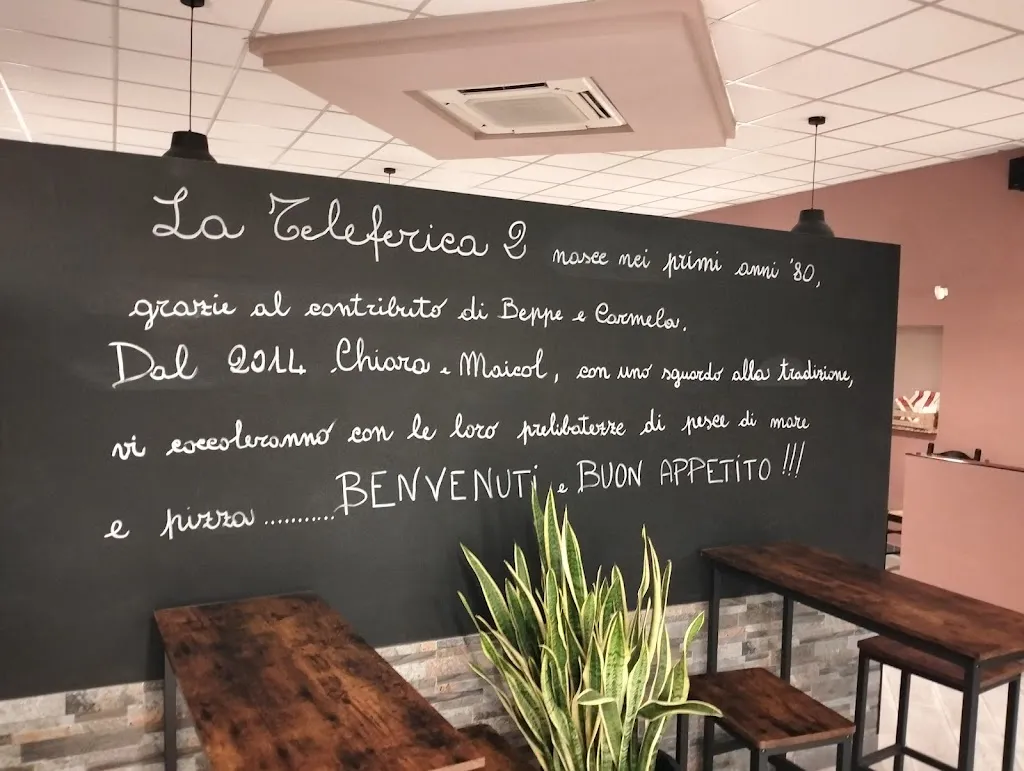 La Teleferica 2 nasce nei primi anni '80,
grazie al contributo di Beppe e Carmela.
Dal 2014 Chiara e Maicol, con uno sguardo alla tradizione,
vi coccoleranno con le loro prelibatezze di pesce di mare
e pizza........... BENVENUTI e BUON APPETITO !!!